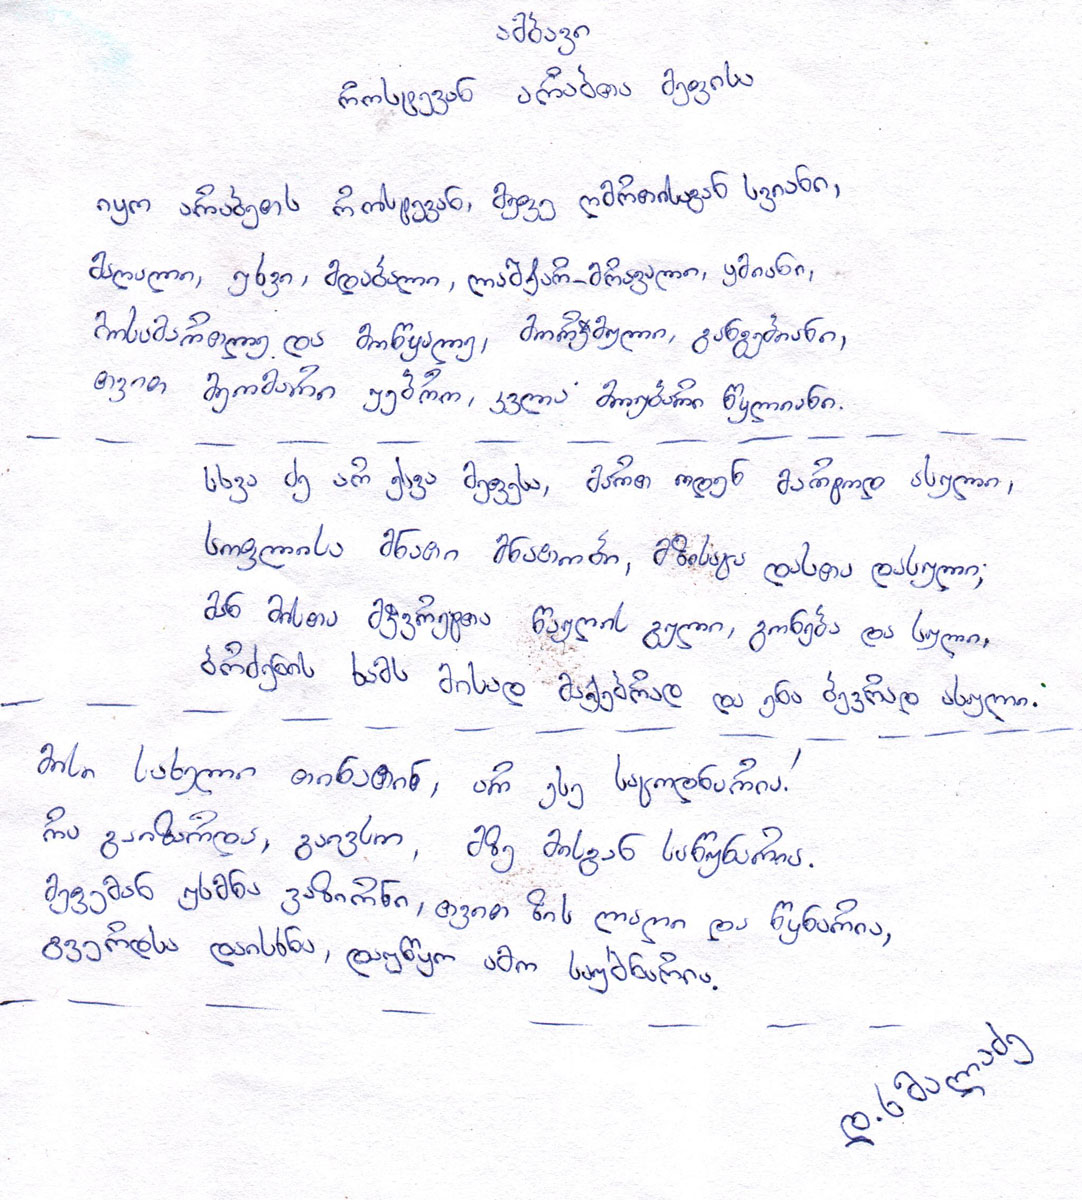 ამბავი
როსტევან არაბთა მეფისა
იყო არაბეთს როსტევან, მეფე ღმრთისაგან სვიანი,
მაღალი, უხვი, მდაბალი, ლაშქარ-მრავალი, ყმიანი,
მოსამართლე და მოწყალე, მორჭმული, განგებიანი,
თვით მეომარი უებრო, კვლა მოუბარი წყლიანი.
სხვა ძე არ ესვა მეფესა, მართ ოდენ მარტოდ ასული,
სოფლისა მნათი მნათობი, მზისაცა დასთა დასული;
მან მისთა მჭვრეტთა წაუღის გული, გონება და სული,
ბრძენის ხამს მისად მაქებრად და ენა ბევრად ასული.
მისი სახელი თინათინ, არ ესე საცოდნარია!
რა გაიზარდა, გაივსო, მზე მისგან საწუნარია.
მეფემან უხმნა ვაზირნი, თვით ზის ლაღი და წყნარია,
გვერდსა დაისხნა, დაუწყო ამო საუბნარია.
დ.სმალაძე